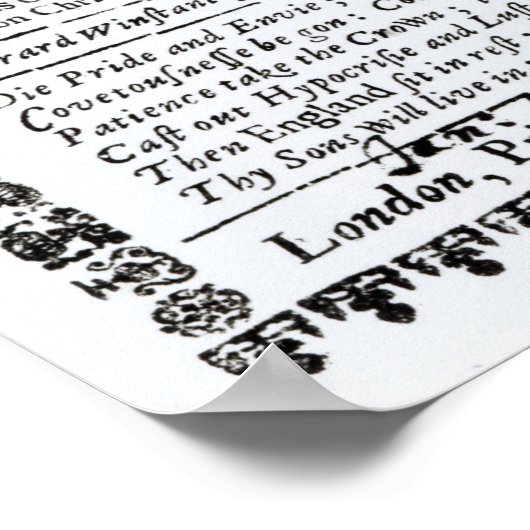 on Chri
rard Winstan
Die Pride and Envie;
Covetouſneſſe be gon: Co
Patience take the Crown;
Caſt out Hypocriſie and Luſ
Then England ſit in reſt
Thy Sons will live in
Jan.
London, P